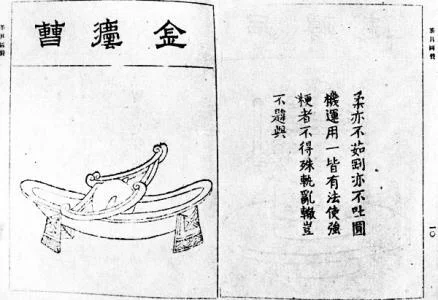 茶具圖贊
一〇
柔亦不茹剛亦不吐圓
機運用一皆有法使強
梗者不得殊軌亂轍豈
不韙與
金灋曹
茶具圖贊